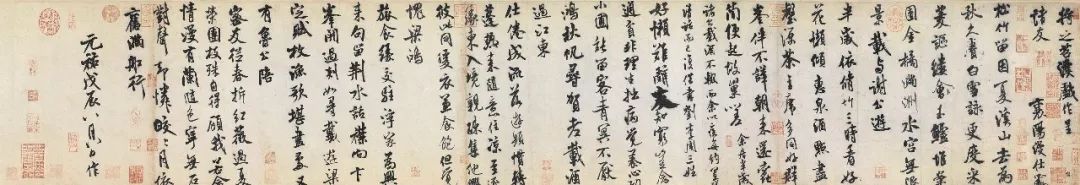 將之苕溪戲作呈
諸友 襄陽漫仕黻
松竹留因夏溪山去為
秋久賡白雪詠更度采
菱謳縷會玉鱸堆案
團金橘滿洲水宮無限
景載與謝公遊
半歲依脩竹三時看好
花懶傾惠泉酒點盡
壑源茶主席多同好群
峯伴不譁朝來還蠹
簡便起故巢嗟 余居半歲諸
公載酒不輟而余以疾每約置膳
清話而已復借書劉李周三姓
好懶難辭友知窮豈念
通貧非理生拙病覺養心功
小圃能留客青冥不厭
鴻秋帆尋賀老載酒
過江東
仕倦成流落遊頻慣轉
蓬熱來隨意住涼至逐
緣東入境親疎集他鄉
彼此同暖衣兼食飽但覺
愧梁鴻
旅食緣交駐浮家為興
來句留荊水話襟向卞
峯開過剡如尋戴遊梁
定賦枚漁歌堪畫處又
有魯公陪
密友從春拆紅薇過夏
榮團枝殊自得顧我若含
情漫有蘭隨色寧無石
對聲却憐皎皎月依
舊滿船行
元祐戊辰八月八日作